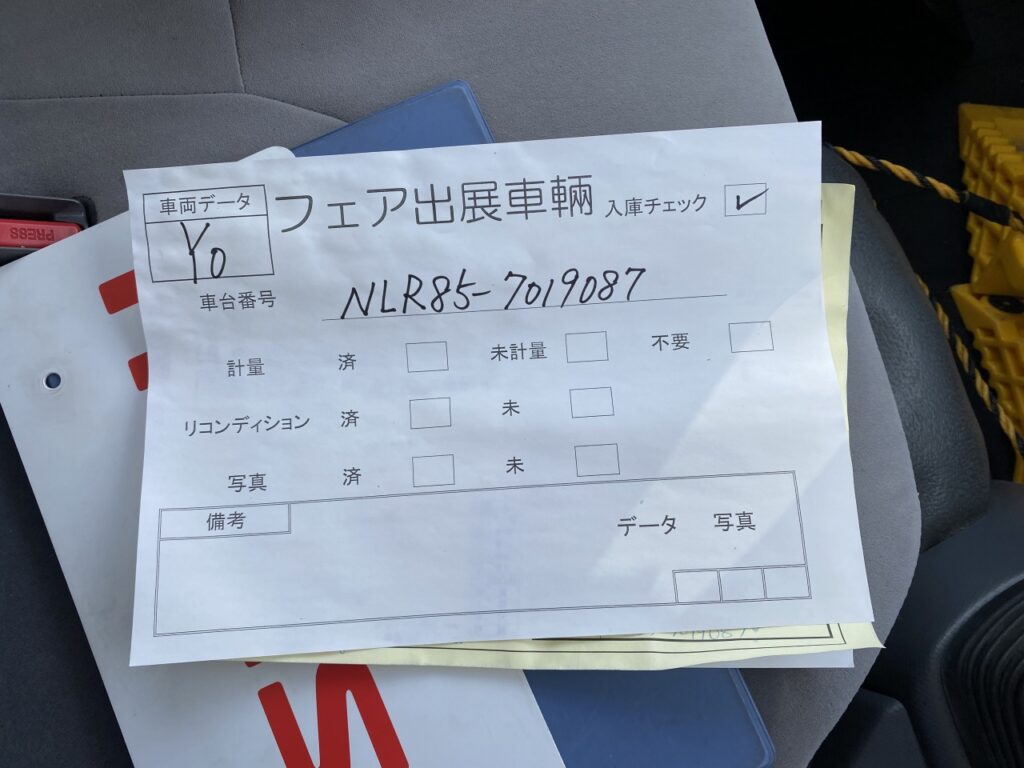 車両データ
Yo
フェア出展車輌 入庫チェック ✓
車台番号 NLR85-7019087
計量 済 未計量 不要
リコンディション 済 未
写真 済 未
備考
データ 写真
PRESS